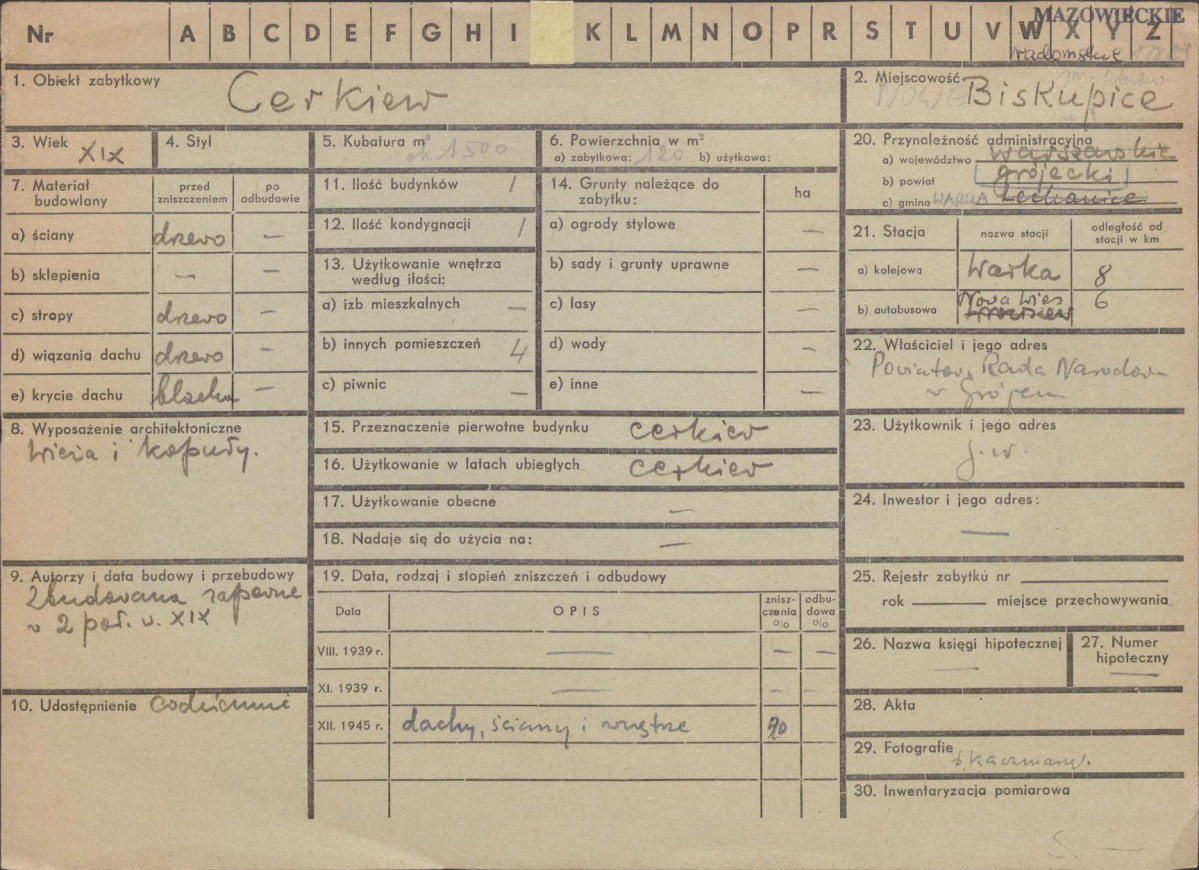 Nr A B C D E F G H I K L M N O P R S T U V W X Y Z
MAZOWIECKIE
radomskie
1. Obiekt zabytkowy Cerkiew
2. Miejscowość NOWE Biskupice
3. Wiek XIX
4. Styl
5. Kubatura m³ ok 1500
6. Powierzchnia w m²
a) zabytkowa: 120 b) użytkowa:
7. Materiał budowlany
przed zniszczeniem
po odbudowie
a) ściany drzewo —
b) sklepienia — —
c) stropy drzewo —
d) wiązania dachu drzewo —
e) krycie dachu blacha —
8. Wyposażenie architektoniczne
Wieża i kopuły.
9. Autorzy i data budowy i przebudowy
Zbudowana zapewne
w 2 poł. w. XIX
10. Udostępnienie codziennie
11. Ilość budynków 1
12. Ilość kondygnacji 1
13. Użytkowanie wnętrza
według ilości:
a) izb mieszkalnych —
b) innych pomieszczeń 4
c) piwnic —
14. Grunty należące do
zabytku:
ha
a) ogrody stylowe —
b) sady i grunty uprawne —
c) lasy —
d) wody —
e) inne —
15. Przeznaczenie pierwotne budynku cerkiew
16. Użytkowanie w latach ubiegłych cerkiew
17. Użytkowanie obecne —
18. Nadaje się do użycia na: —
19. Data, rodzaj i stopień zniszczeń i odbudowy
Data OPIS znisz-czenia o|o odbu-dowa o|o
VIII. 1939 r. — — —
XI. 1939 r. — — —
XII. 1945 r. dachy, ściany i wnętrze 90
20. Przynależność administracyjna
a) województwo warszawskie
b) powiat grójecki
c) gmina WARKA Lechanice
21. Stacja
nazwa stacji
odległość od
stacji w km
a) kolejowa Warka 8
b) autobusowa Nowa Wieś 6
22. Właściciel i jego adres
Powiatow. Rada Narodow
w Grójcu
23. Użytkownik i jego adres
j.w.
24. Inwestor i jego adres:
—
25. Rejestr zabytku nr
rok miejsce przechowywania
26. Nazwa księgi hipotecznej
—
27. Numer
hipoteczny
—
28. Akta
29. Fotografie
30. Inwentaryzacja pomiarowa